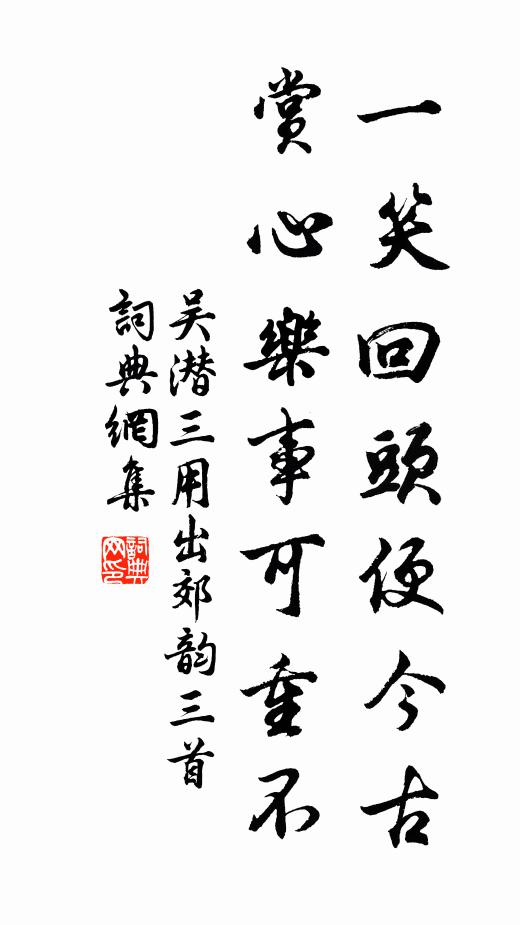 一笑回頭便今古
賞心樂事可重不
吳潛三用出郊韵三首
詞典網集
詞典网印